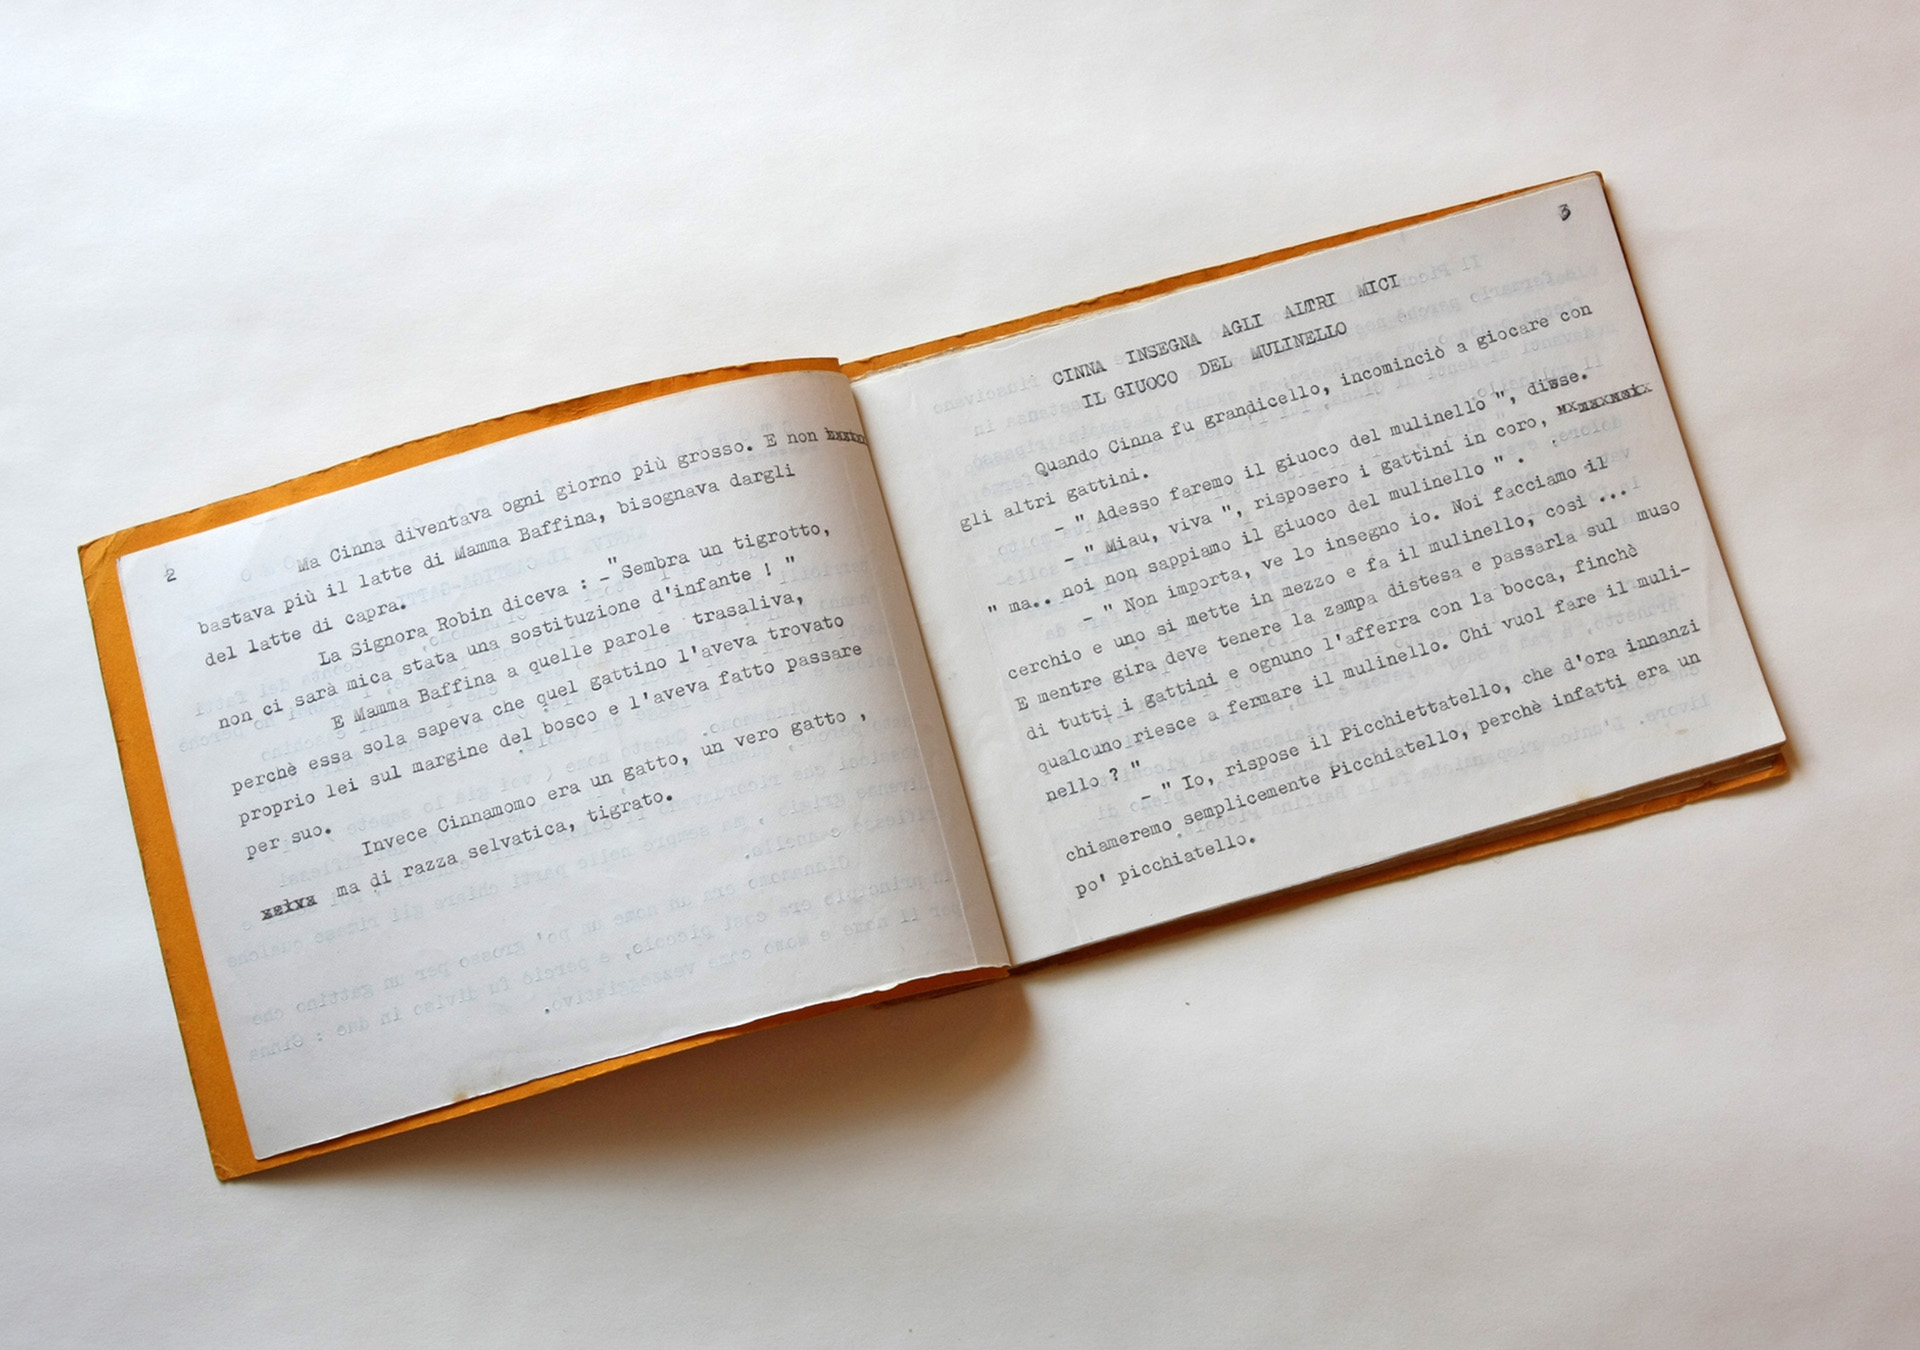 2
Ma Cinna diventava ogni giorno più grosso. E non
bastava più il latte di Mamma Baffina, bisognava dargli
del latte di capra.
La Signora Robin diceva : -"Sembra un tigrotto,
non ci sarà mica stata una sostituzione d'infante ! "
E Mamma Baffina a quelle parole trasaliva,
perchè essa sola sapeva che quel gattino l'aveva trovato
proprio lei sul margine del bosco e l'aveva fatto passare
per suo.
Invece Cinnamomo era un gatto, un vero gatto ,
ma di razza selvatica, tigrato.
3
CINNA INSEGNA AGLI ALTRI MICI
IL GIUOCO DEL MULINELLO
Quando Cinna fu grandicello, incominciò a giocare con
gli altri gattini.
- " Adesso faremo il giuoco del mulinello ", disse.
- " Miau, viva ", risposero i gattini in coro,
" ma.. noi non sappiamo il giuoco del mulinello " .
- " Non importa, ve lo insegno io. Noi facciamo il
cerchio e uno si mette in mezzo e fa il mulinello, così ...
E mentre gira deve tenere la zampa distesa e passarla sul muso
di tutti i gattini e ognuno l'afferra con la bocca, finchè
qualcuno riesce a fermare il mulinello. Chi vuol fare il muli-
nello ? "
- " Io, rispose il Picchiettatello, che d'ora innanzi
chiameremo semplicemente Picchiatello, perchè infatti era un
po' picchiatello.